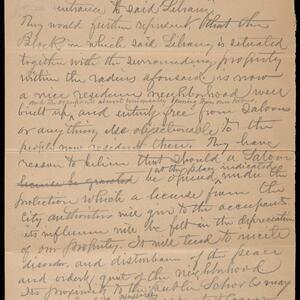 entrance to said Library.
They would further represent, that the
Block in which said Library is situated
together with the surrounding property
within the radius aforesaid is now
a nice resident neighborhood well
and the occupants almost universally owning their own homes
built up, and entirely free from Saloons
or anything else objectionable to the
people now resident there. They have
reason to believe that should a Saloon
at the place indicated
license be granted be opened under the
protection which a license from the
City authorities will give to the occupants
its influence will be felt in the depreciation
of our property. It will tend to incite
disorder, and disturbance of the peace
and orderly quiet of the neighborhood
Its proximity to the public Schools may